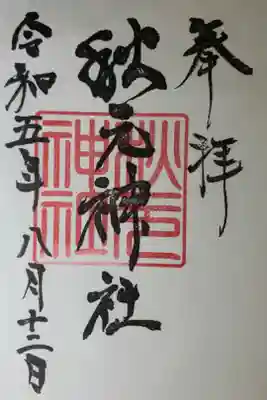 奉拝
秋元神社
令和五年八月十二日
秋元
神社